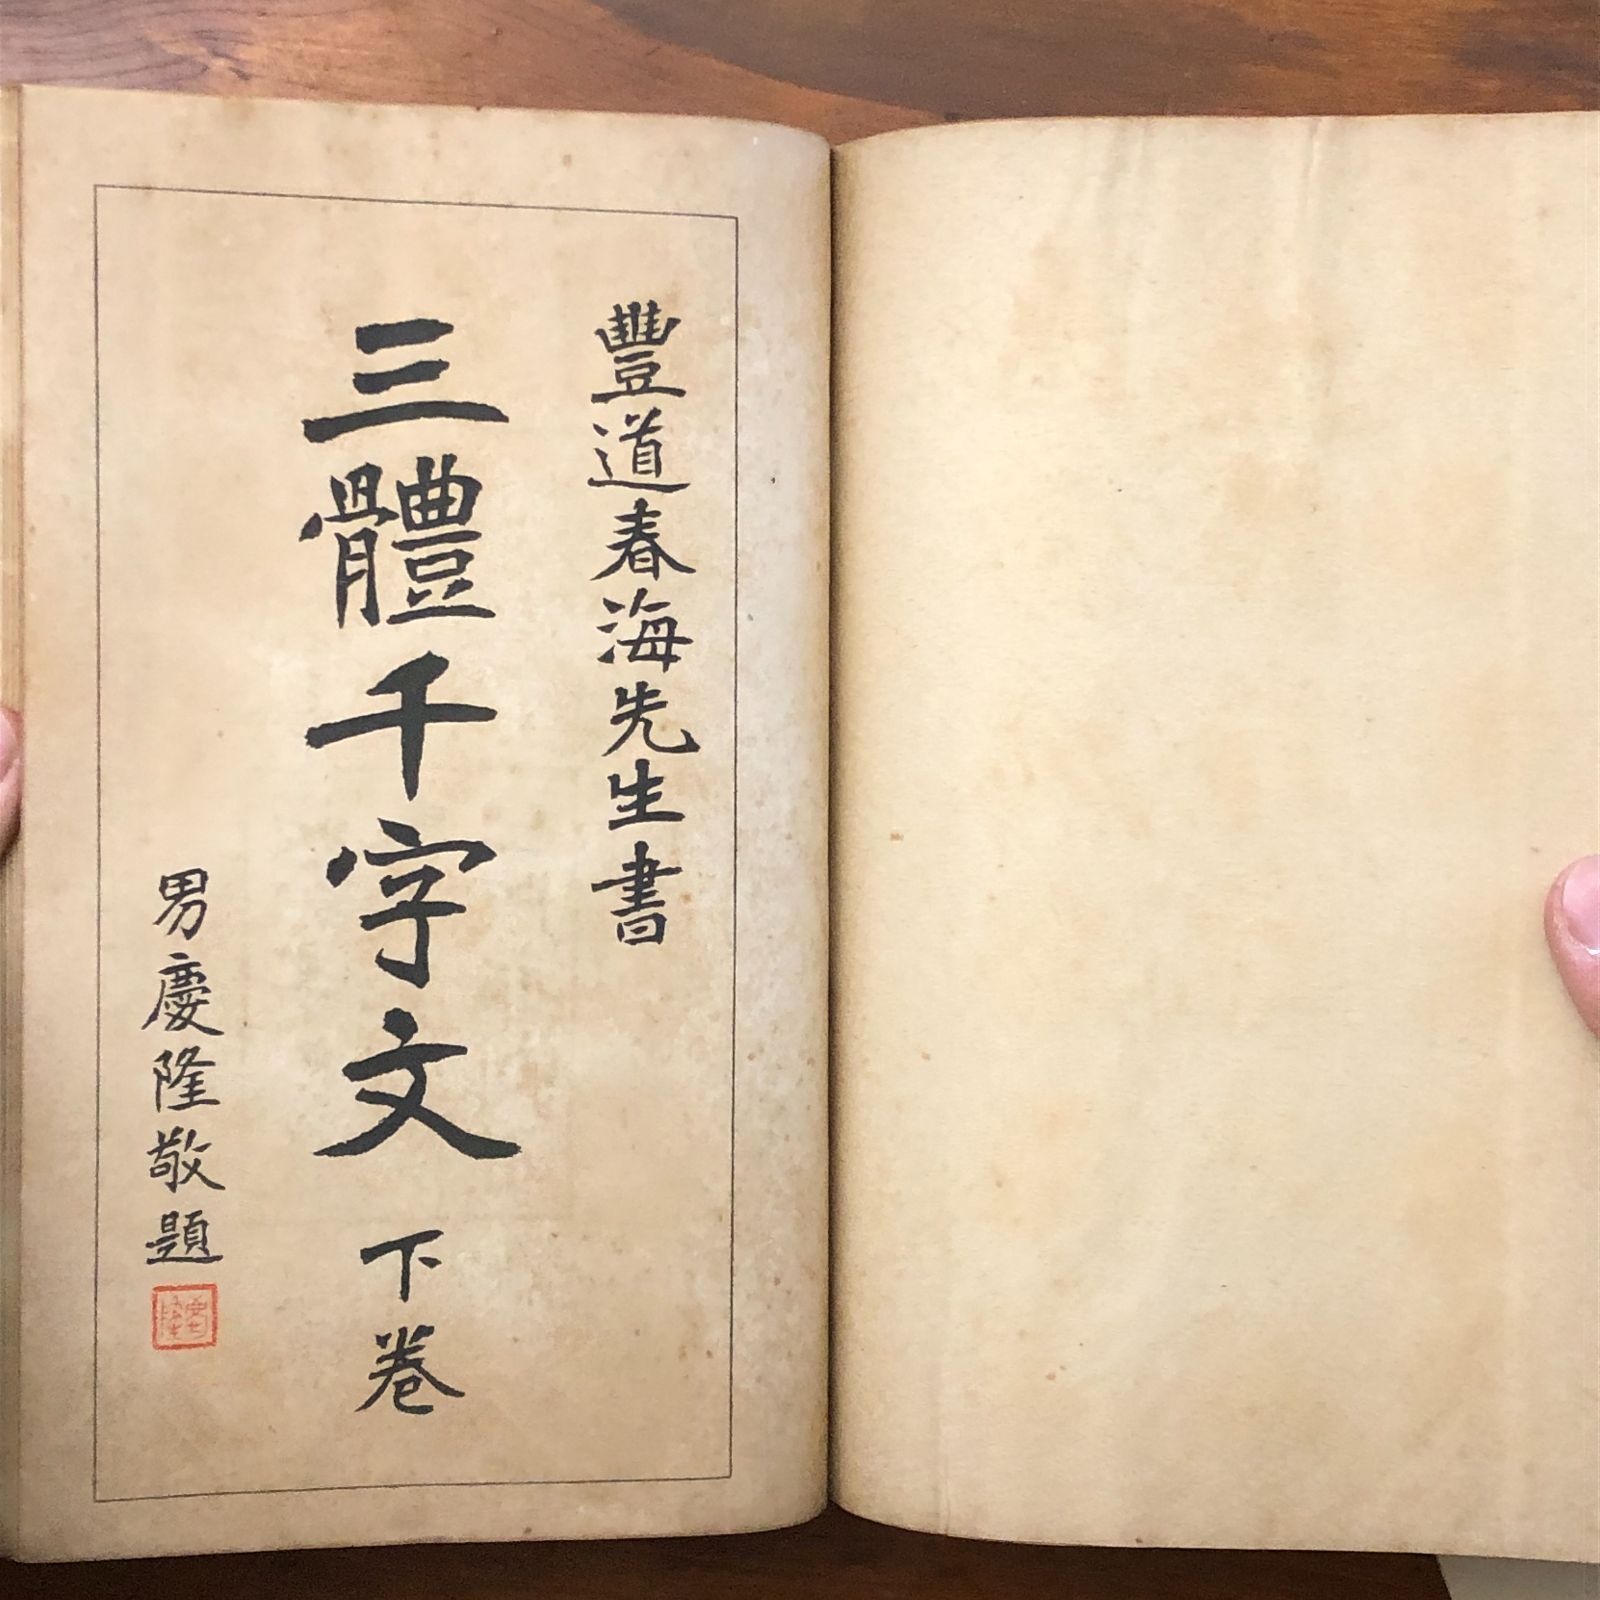 豐道春海先生書
三體千字文 下卷
男慶隆敬題
慶隆